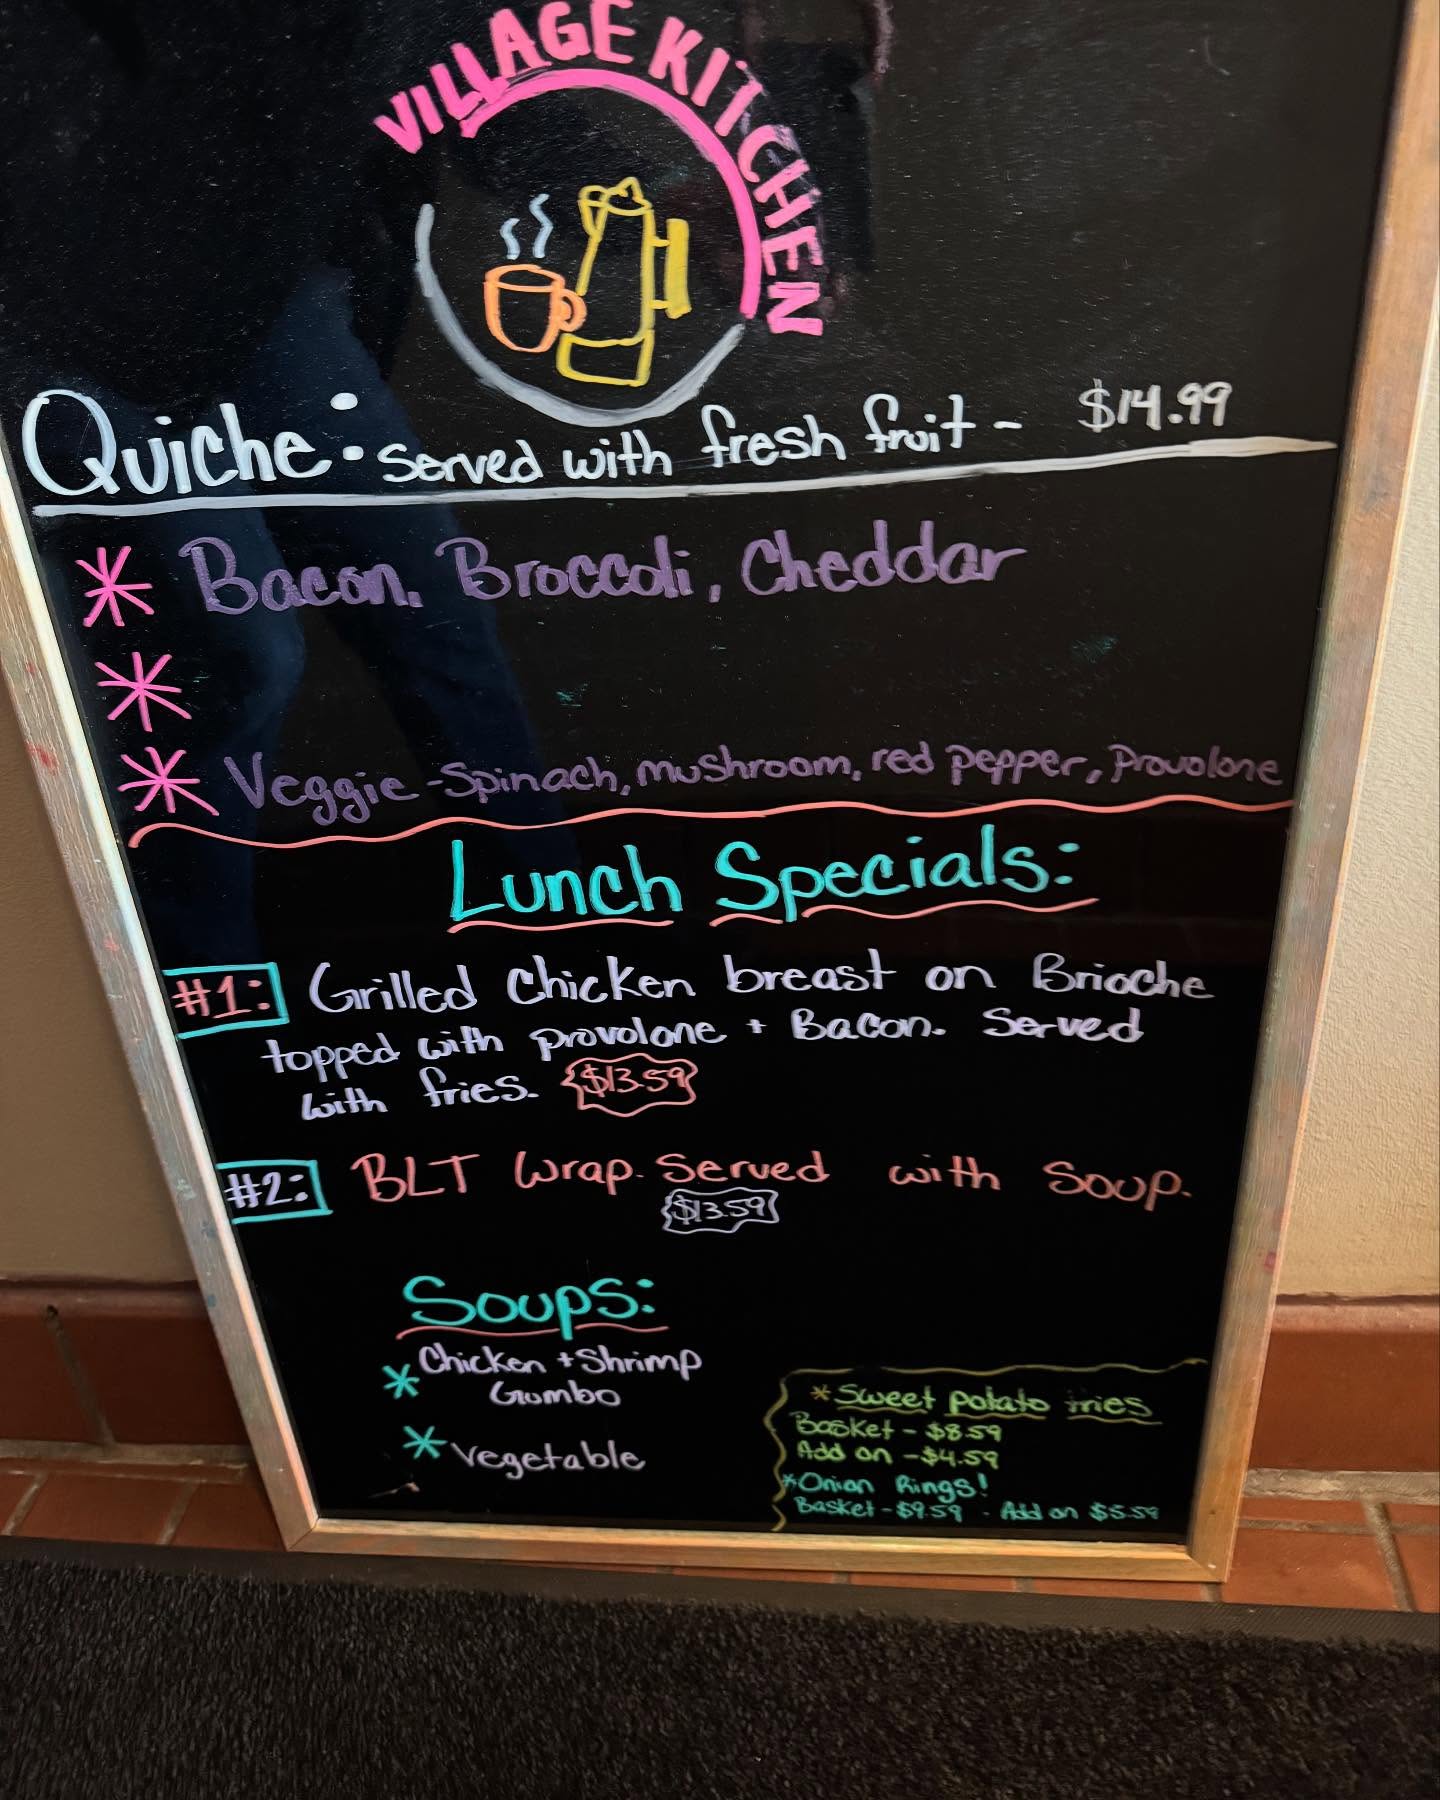 VILLAGE KITCHEN
Quiche: served with fresh fruit - $14.99
* Bacon, Broccoli, Cheddar
*
* Veggie - Spinach, mushroom, red pepper, Provolone
Lunch Specials:
#1: Grilled Chicken breast on Brioche
topped with provolone + Bacon. Served
with fries. $13.59
#2: BLT Wrap. Served with Soup.
$13.59
Soups:
* Chicken + Shrimp
Gumbo
* Vegetable
* Sweet potato fries
Basket - $8.59
Add on - $4.59
* Onion Rings!
Basket - $9.59 - Add on $5.59